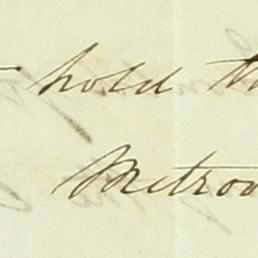 hold th
Metrov